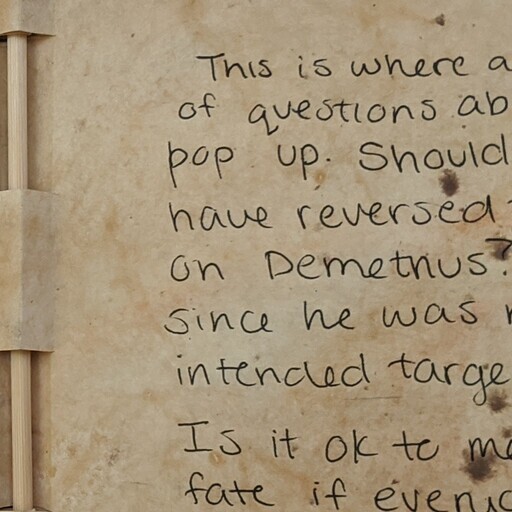 This is where a
of questions ab
pop up. Should
have reversed
on Demetrius?
since he was
intended targe
Is it ok to
fate if